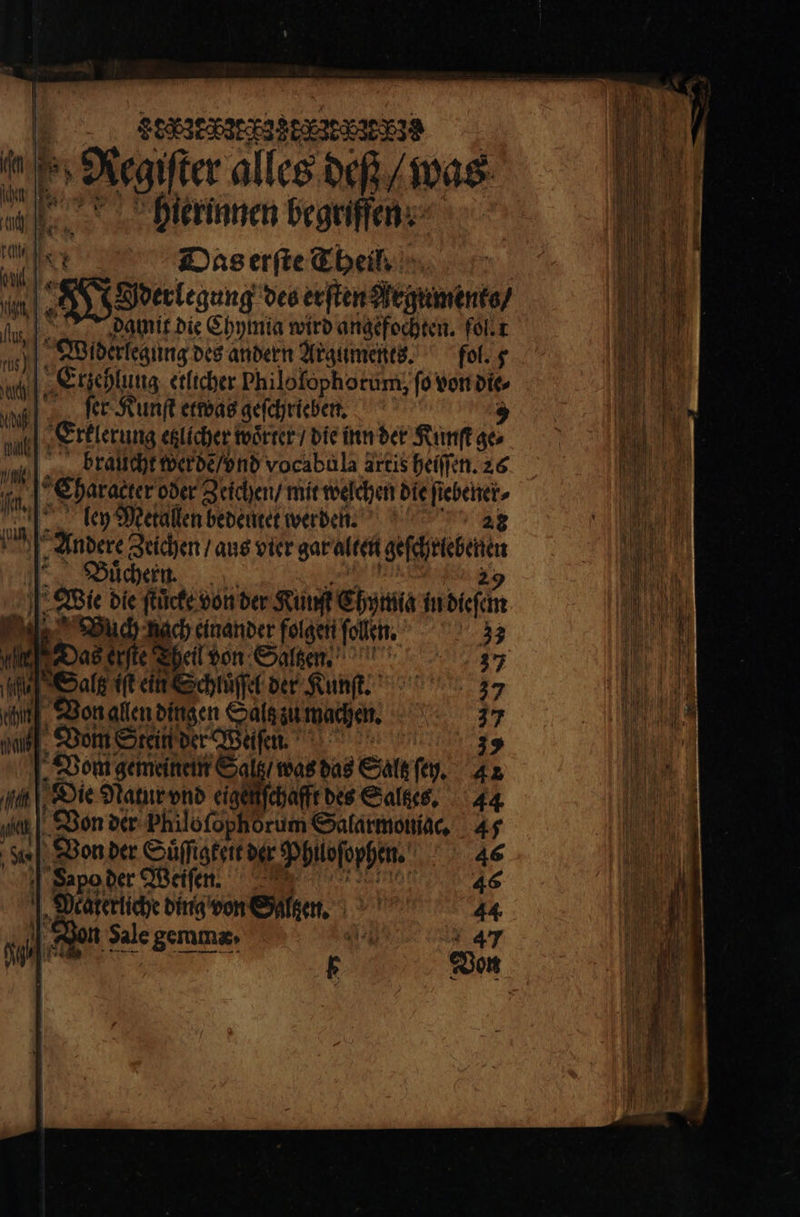 Regiſter alles deß / was
hierinnen begriffen.
Das erſte Theil.
WIderlegung des erſten Arguments /
damit die Chymia wird angefochten. fol. 1
Widerlegung des andern Arguments. fol. 5
Erzehlung etlicher Philoſophorum, ſo von die⸗
ſer Kunſt etwas geſchrieben. 9
Erklerung etzlicher woͤrter / die inn der Kunſt ge⸗
braucht werdẽ / vnd vocabula artis heiſſen. 26
Character oder Zeichen / mit welchen die ſiebener⸗
ley Metallen bedeutet werden. 28
Andere Zeichen / aus vier gar alten geſchriebenen
Buͤchern. 29
Wie die ſtuͤcke von der Kunſt Chymia in dieſem
Buch nach einander folgen ſollen. 33
Das erſte Theil von Saltzen. 37
Saltz iſt ein Schluͤſſel der Kunſt. 37
Von allen dingen Saltz zu machen. 37
Vom Stein der Weiſen. 39
Vom gemeinem Saltz / was das Saltz ſey. 42
Die Natur vnd eigenſchafft des Saltzes. 44
Von der Philoſophorum Salarmoniac. 45
Von der Suͤſſigkeit der Philoſophen. 46
Sapo der Weiſen. 46
Materliche ding von Saltzen. 44
Von Sale gemmæ. 47
Von